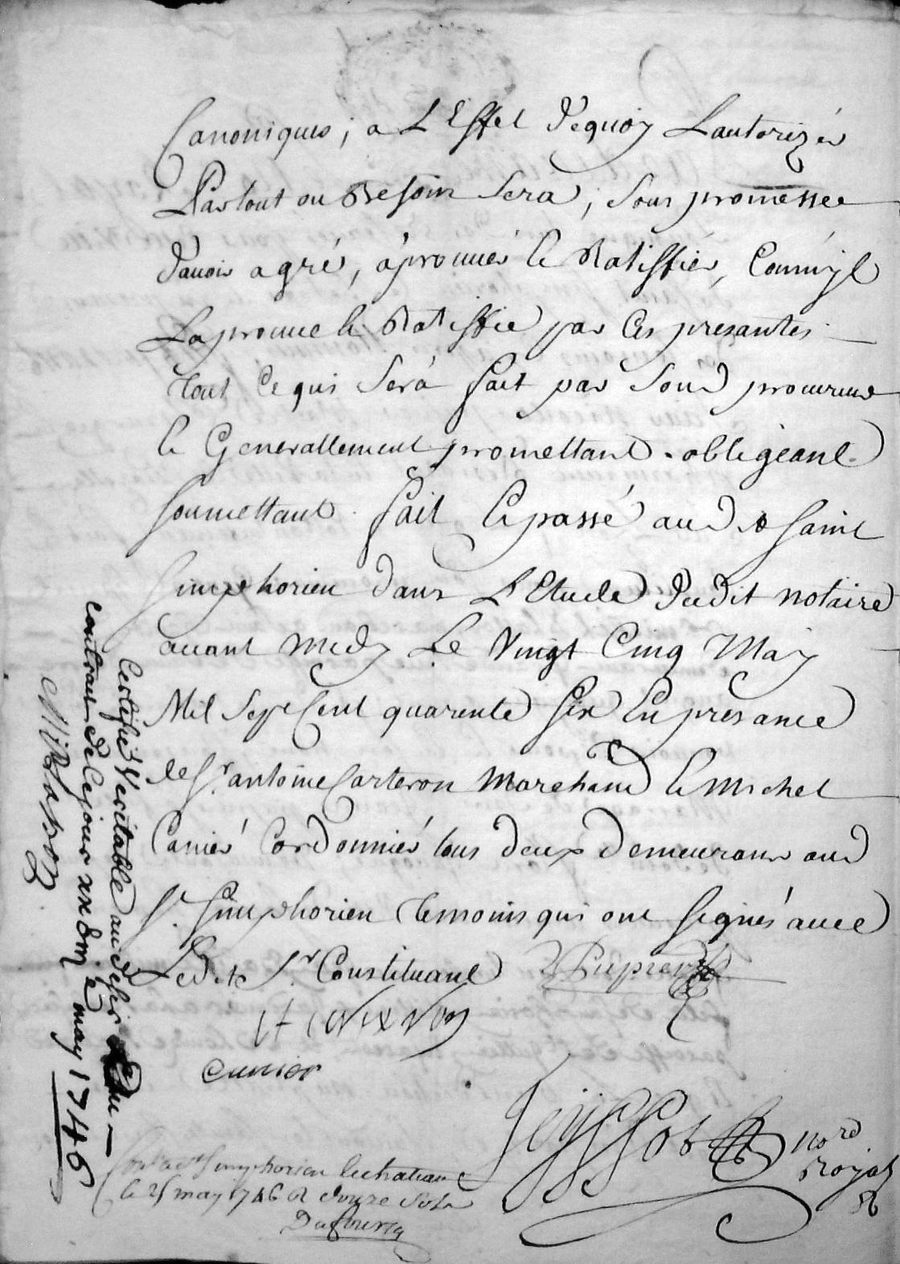 Canoniques; a L'Effet dequoy Lautorizer
Partout ou Besoin Sera; sous promesse
d'avoir agré, aprouver le Ratiffier, Comm'jl
Laprouve le Ratiffie par Ces presantes
tout Ce qui Sera fait par Sond procureur
le Generallement promettant obligeant
soumettant fait Lepassé aud saint
simphorien dans L'Etude dudit notaire
avant Medy Le Vingt Cinq May
Mil Sept Cent quarente six En presance
de Sr. antoine Carteron Marchand le Michel
Canier Cordonnier tous deux demeurans aud
St. simphorien temoins qui ont signés avec
Ledit Sr Constituant Dupré
Canier
nord
Royal
Certifié Veritable au desir du
contrat de cejour xxbme may 1746
simphorien lechateau
le 25 may 1746 R douze sols